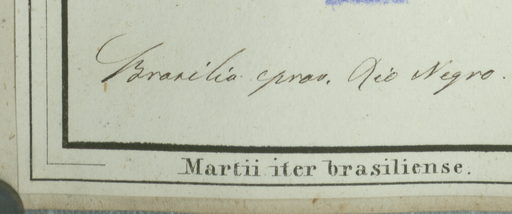 Brasilia prov. Rio Negro.
Martii iter brasiliense.